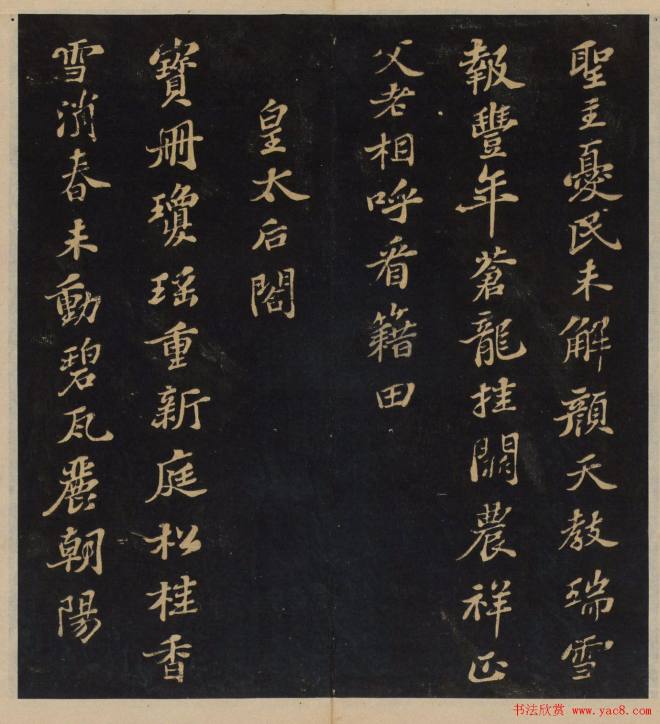 聖主憂民未解顏天教瑞雪
報豐年蒼龍挂闕農祥正
父老相呼看籍田
皇太后閤
寶冊瓊瑤重新庭松桂香
雪消春未動碧瓦麗朝陽
书法欣赏 www.yac8.com